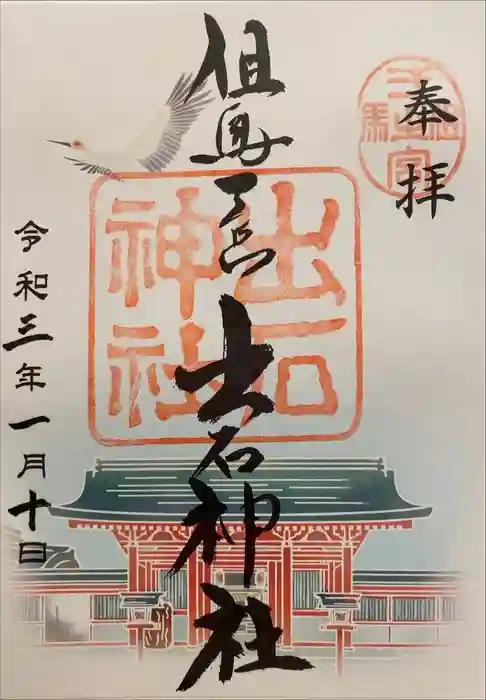 奉拝
但馬一宮
出石神社
出石
神社
令和三年一月十日